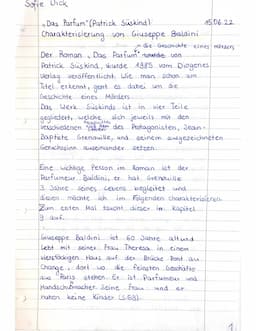 Sofie Dick
„Das Parfum" (Patrick Süskind) 15.06.22
Charakterisierung von Giuseppe Baldini
- die Geschichte eines Mörders
Der Roman „Das Parfum" wurde von
Patrick Süskind, wurde 1985 vom Diogenes
Verlag veröffentlicht. Wie man schon am
Titel erkennt, geht es dabei um die
Geschichte eines Mörders.
Das Werk Süskinds ist in vier Teile
gegliedert, welche sich jeweils mit den
verschiedenen des Protagonisten, Jean-
Baptiste Grenouille, und seinem ausgezeichneten
Geruchssinn auseinander setzen.
Eine wichtige Person im Roman ist der
Parfumeur Baldini, er hat Grenouille
3 Jahre seines Lebens begleitet und
diesen möchte ich im Folgenden charakterisieren.
Zum ersten Mal taucht dieser im Kapitel
9 auf.
Giuseppe Baldini ist 60 Jahre alt und
lebt mit seiner Frau Theresa in einem
vierstöckigen Haus auf der Brücke Pont au
Change, dort wo die feinsten Geschäfte
aus Paris stehen. Er ist Parfumeur und
Handschuhmacher. Seine Frau und er
haben keine Kinder
1.